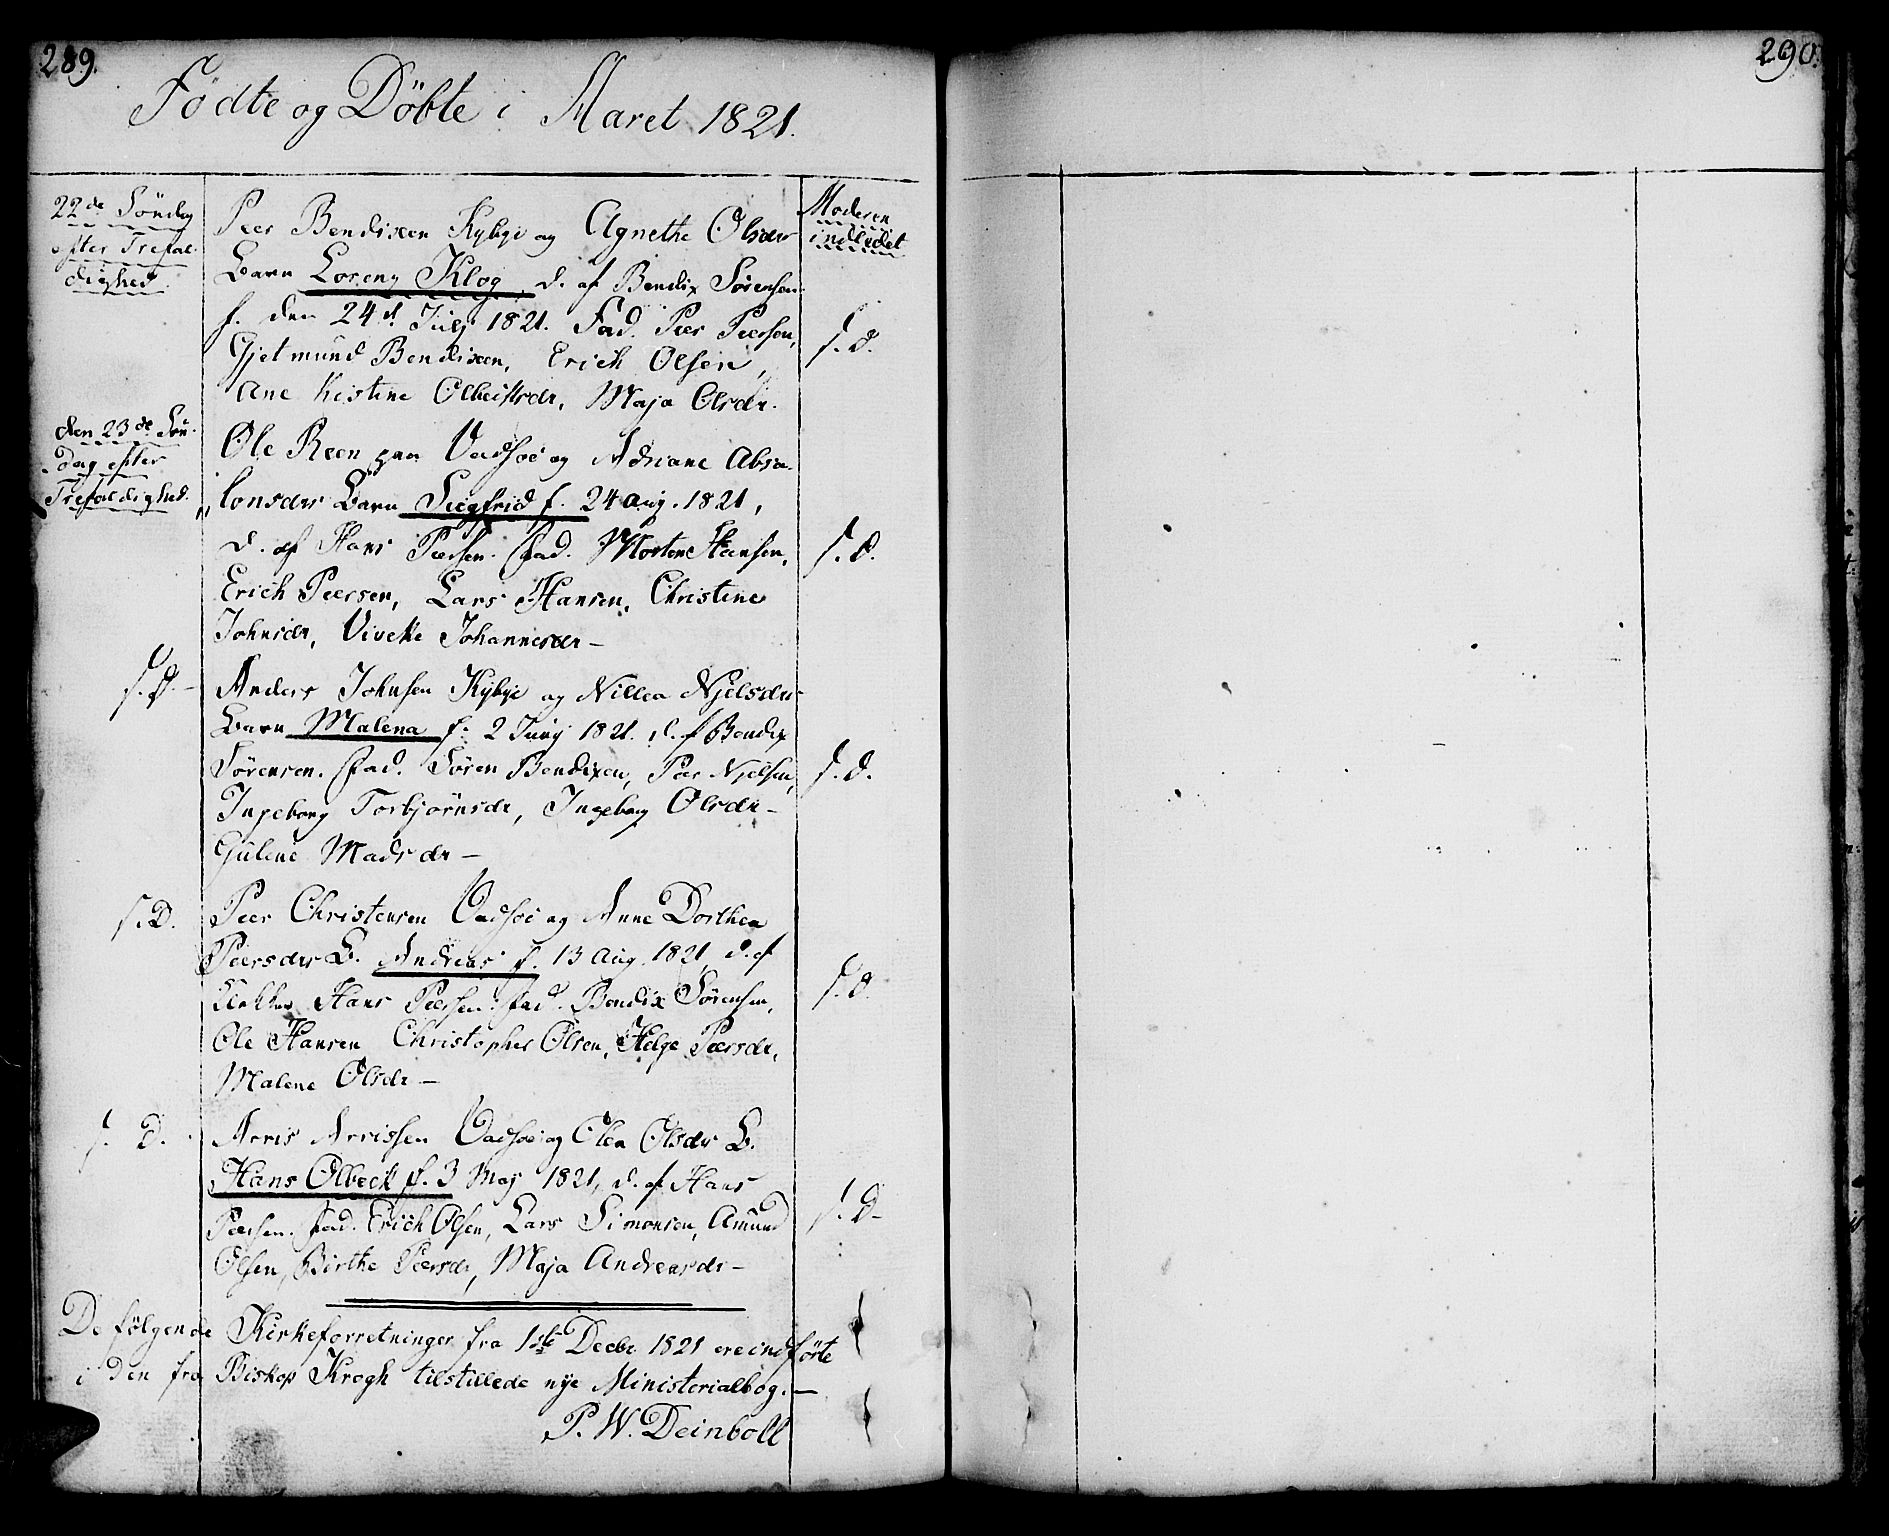 289.
290.
Födte og Döbte i Aaret 1821.
22de Söndag
efter Trefal-
dighed
Moderen
indledet
Peer Bendixen Kybye og Agnethe Olsdr
Barn Lorenz Klog, d. af Bendix Sörensen
f. den 24d July 1821. Fad. Peer Peersen,
Gjetmund Bendixen, Erich Olsen,
Ane Kistine Olbeiksdr, Maja Olsdr.
s. d.
den 23de Sön-
dag efter
Trefaldighed.
Ole Reen Vadsöe og Adriane Absa-
lonsdr Barn Siegfrid f. 24 Aug. 1821,
d. af Hans Peersen. Fad. Morten Hansen,
Erich Peersen, Lars Hansen, Christine
Johnsdr, Viveke Johannesdr –
s. d.
s. D. –
Anders Johnsen Kybye og Nillea Njelsdr
Barn Malena f. 2 Juny 1821. d. af Bendix
Sörensen. Fad. Sören Bendixen, Peer Njelsen,
Ingeborg Torbjörnsdr, Ingeborg Olsdr –
Gulene Madsdr –
s. d.
s. D.
Peer Christensen Vadsöe og Anne Dorthea
Peersdr B. Andreas f. 13 Aug. 1821, d. af
Klokker Hans Peersen. Fad. Bendix Sörensen,
Ole Hansen Christopher Olsen, Helge Peersdr,
Malene Olsdr –
s. d.
s. D.
Arris Arrissen Vadsöe og Elen Olsdr B.
Hans Olbeck f. 3 May 1821, d. af Hans
Peersen. Fad. Erich Olsen, Lars Simonsen, Amund
Olsen, Birthe Peersdr, Maja Andreasdr –
s. D –
De fölgende Kirkeforretninger fra 1ste Decbr 1821 ere indförte
i den fra Biskop Krogh tilstillede nye Ministerialbog. –
P. W. Deinboll